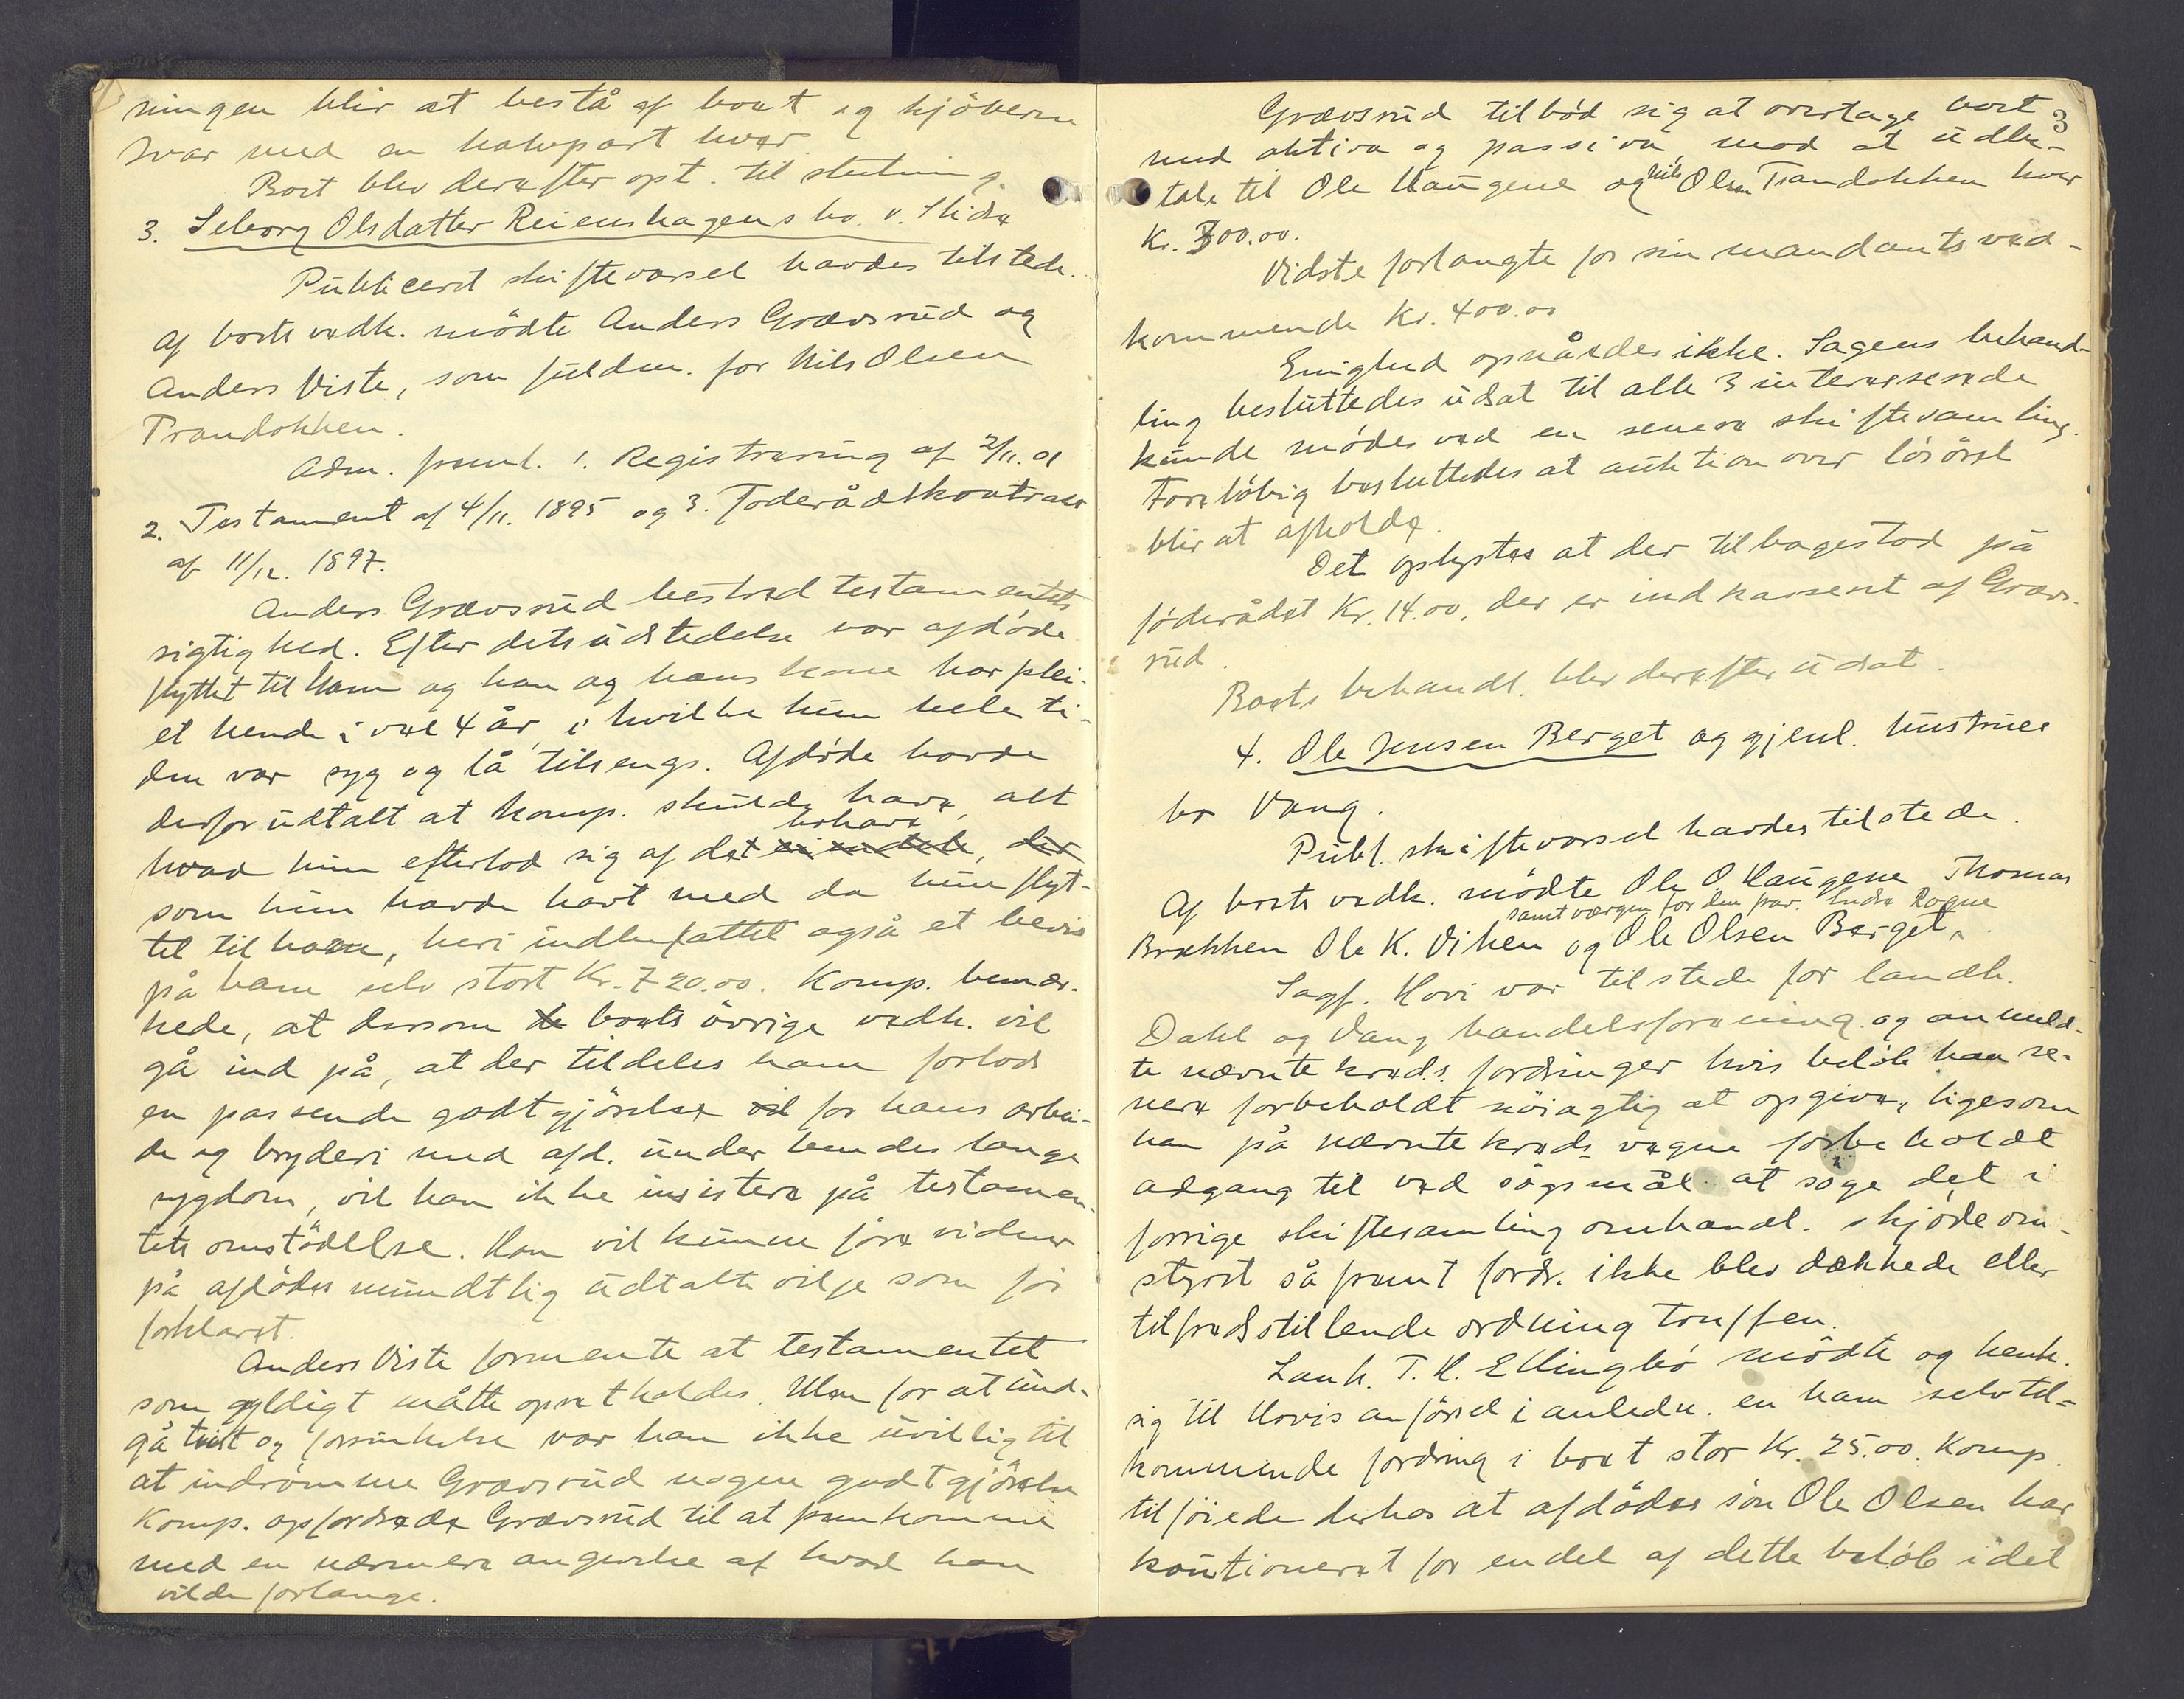 ningen blir at bestå af boet og kjöberen
svar med en halvpart hver
Boet blev derefter opt. til slutning.
3. Seborg Olsdatter Reienshagens bo. v. Slidre
Publiceret skiftevarsel havdes tilstede.
Af boets vedk. mödte Anders Grævsrud og
Anders Viste, som fuldm. for Nils Olsen
Trandokken.
Adm. freml. 1. Registrering af 2/11. 01
2. Testament af 4/11. 1895 og 3. Foderådskontrakt
af 11/12. 1897.
Anders Grævsrud bestred testamentets
rigtighed. Efter dets udstedelse var afdöde
flyttet til ham og han og hans kone har plei-
et hende i vel 4 år, i hvilke hun hele ti-
den var syg og lå tilsengs. Afdöde havde
derfor udtalt at komp. skulde have, alt
behave
hvad hun efterlod sig af det
som hun havde havt med da hun flyt-
tet til ham, heri indbefattet også et bevis
på ham selv stort Kr. 720.00. Komp. bemær-
kede, at dersom de boets övrige vedk. vil
gå ind på, at der tildeles ham forlods
en passende godtgjörelse vil for hans arbei-
de og bryderi med afd. under hendes lange
sygdom, vil han ikke insistere på testamen-
tets omstödelse. Han vil kunne före vidner
på afdödes mundtlig udtalte vilje som för
forklaret.
Anders Viste formente at testamentet
som gyldigt måtte opretholdes. Men for at und-
gå tvist og forsinkelse var han ikke uvillig til
at indrömme Grævsrud nogen godtgjörelse
Komp. opfordrede Grævsrud til at fremkomme
med en nærmere angivelse af hvad han
vilde forlange.
3
Grævsrud tilböd sig at overtage boet
med aktiva og passiva, mod at udbe-
tale til Ole Haugene og Nils Olsen Trandokken hver
Kr. 300.00.
Vidste forlangte for sin mandants ved-
kommende Kr. 400.00
Enighed opnåedes ikke. Sagens behand-
ling besluttedes udsat til alle 3 interesserede
kunde mödes ved en senere skiftesamling.
Forelöbig besluttedes at auktion over lösöret
blir at afholde.
Det oplystes at der tilbagestod på
föderådet Kr. 14.00, der er indkasseret af Grævs-
rud.
Boets behandl. blev derefter udsat.
4. Ole Jensen Berget og gjenl. hustrues
bo Vang.
Publ. skiftevarsel havdes tilstede.
Af boets vedk. mödte Ole O Haugene Thomas
samt værgen for den frav. Endre Rogne
Brækken Ole K. Viken og Ole Olsen Berget,
Sagf. Hovi var tilstede for landh.
Dahl og Vang handelsforening og anmeld-
te nævnte kreds. fordringer hvis belöb han se-
nere forbeholdt nöiagtig at opgive, ligesom
han på nævnte kreds. vegne forbeholdt
adgang til ved sögsmål at söge det i
forrige skiftesamling omhandl. skjöde om-
styrt så fremt fordr. ikke blev dækkede eller
tilfredsstillende ordning truffen.
Lanh. T. H. Ellingbö mödte og henh.
sig til Hovis anförsel i anledn. en ham selv til-
kommende fordring i boet stor Kr. 25.00. Komp.
tilföiede derhos at afdödes sön Ole Olsen har
kautioneret for endel af dette belöb idet